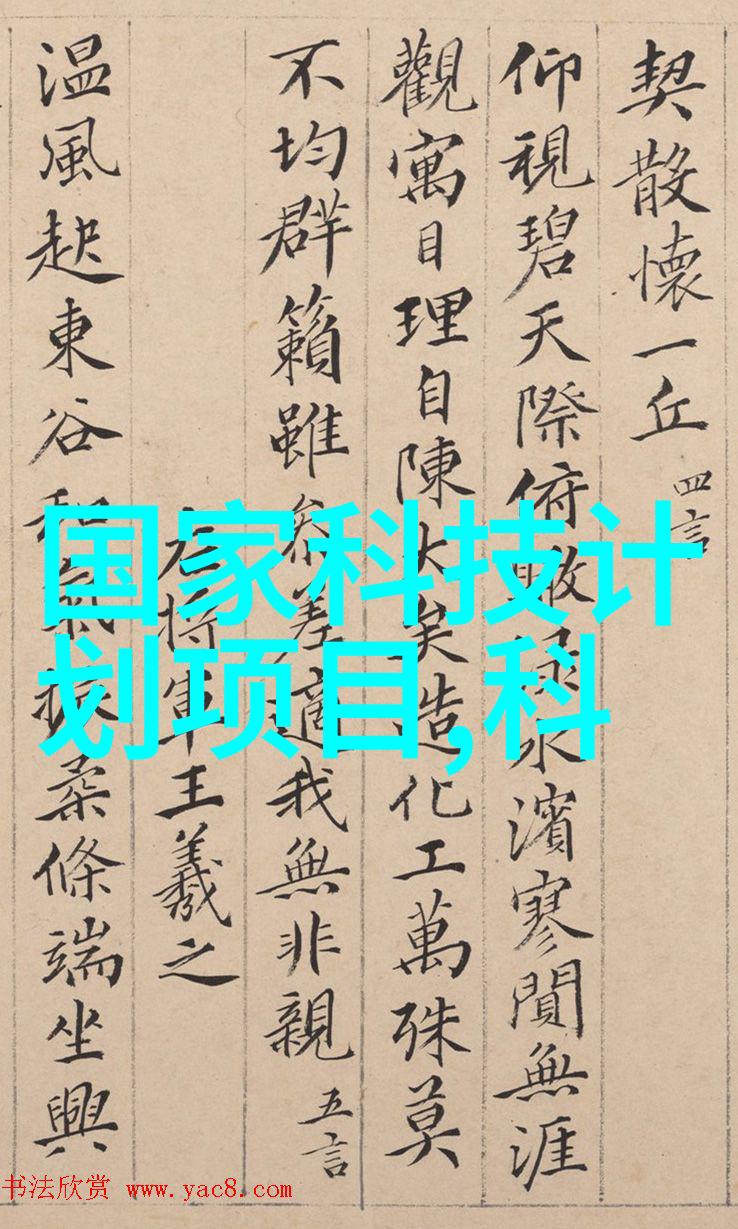 契散懷一丘 四言
仰視碧天際俯瞰水濱寥閴無涯
觀寓目理自陳大矣造化工萬殊莫
不均群籟雖參差適我無非親 五言
右將軍王羲之
温風起東谷和氣振柔條端坐興
国家科技计
划项目,科
书法欣赏 www.yac8.com